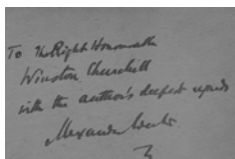 To The Right Honourable
Winston Churchill
with the author's deepest regards
Alexander